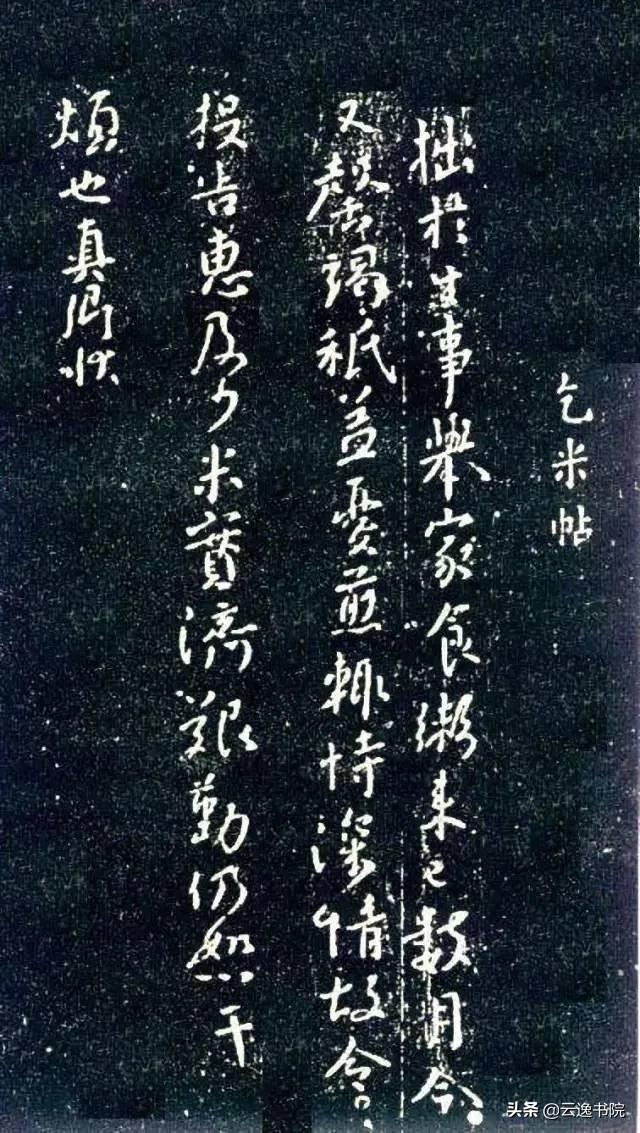 乞米帖
拙於生事舉家食粥來已數月今
又罄竭祗益憂煎輒恃深情故令
投告惠及少米實濟艱勤仍恕干
煩也真卿狀
头条 @云逸书院